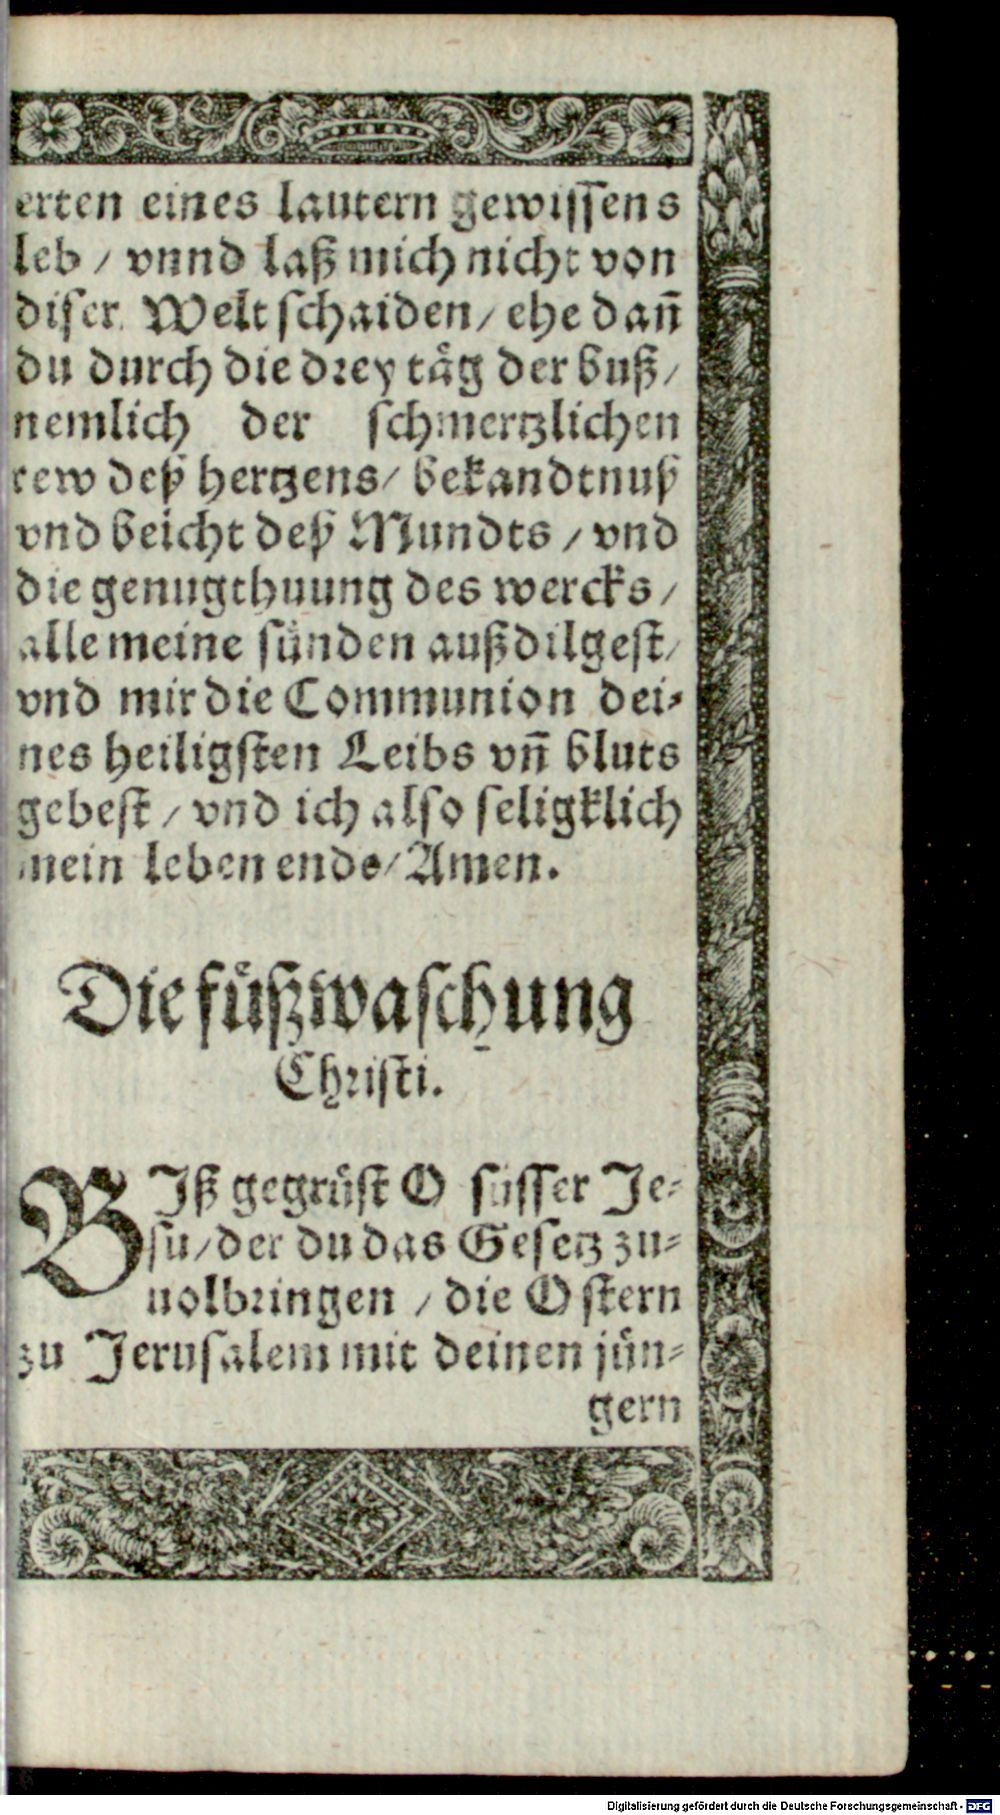 erten eines lautern gewissens
leb / vnnd laß mich nicht von
diser Welt schaiden / ehe dañ
du durch die drey täg der buß /
nemlich der schmertzlichen
rew deß hertzens / bekandtnuß
vnd beicht deß Mundts / vnd
die genugthuung des wercks /
alle meine sünden außdilgest /
vnd mir die Communion dei-
nes heiligsten Leibs vñ bluts
gebest / vnd ich also seligklich
mein leben ende / Amen.
Die füßwaschung
Christi.
BIß gegrüst O süsser Je-
su / der du das Gesetz zu-
uolbringen / die Ostern
zu Jerusalem mit deinen jün-
gern
Digitalisierung gefördert durch die Deutsche Forschungsgemeinschaft - DFG